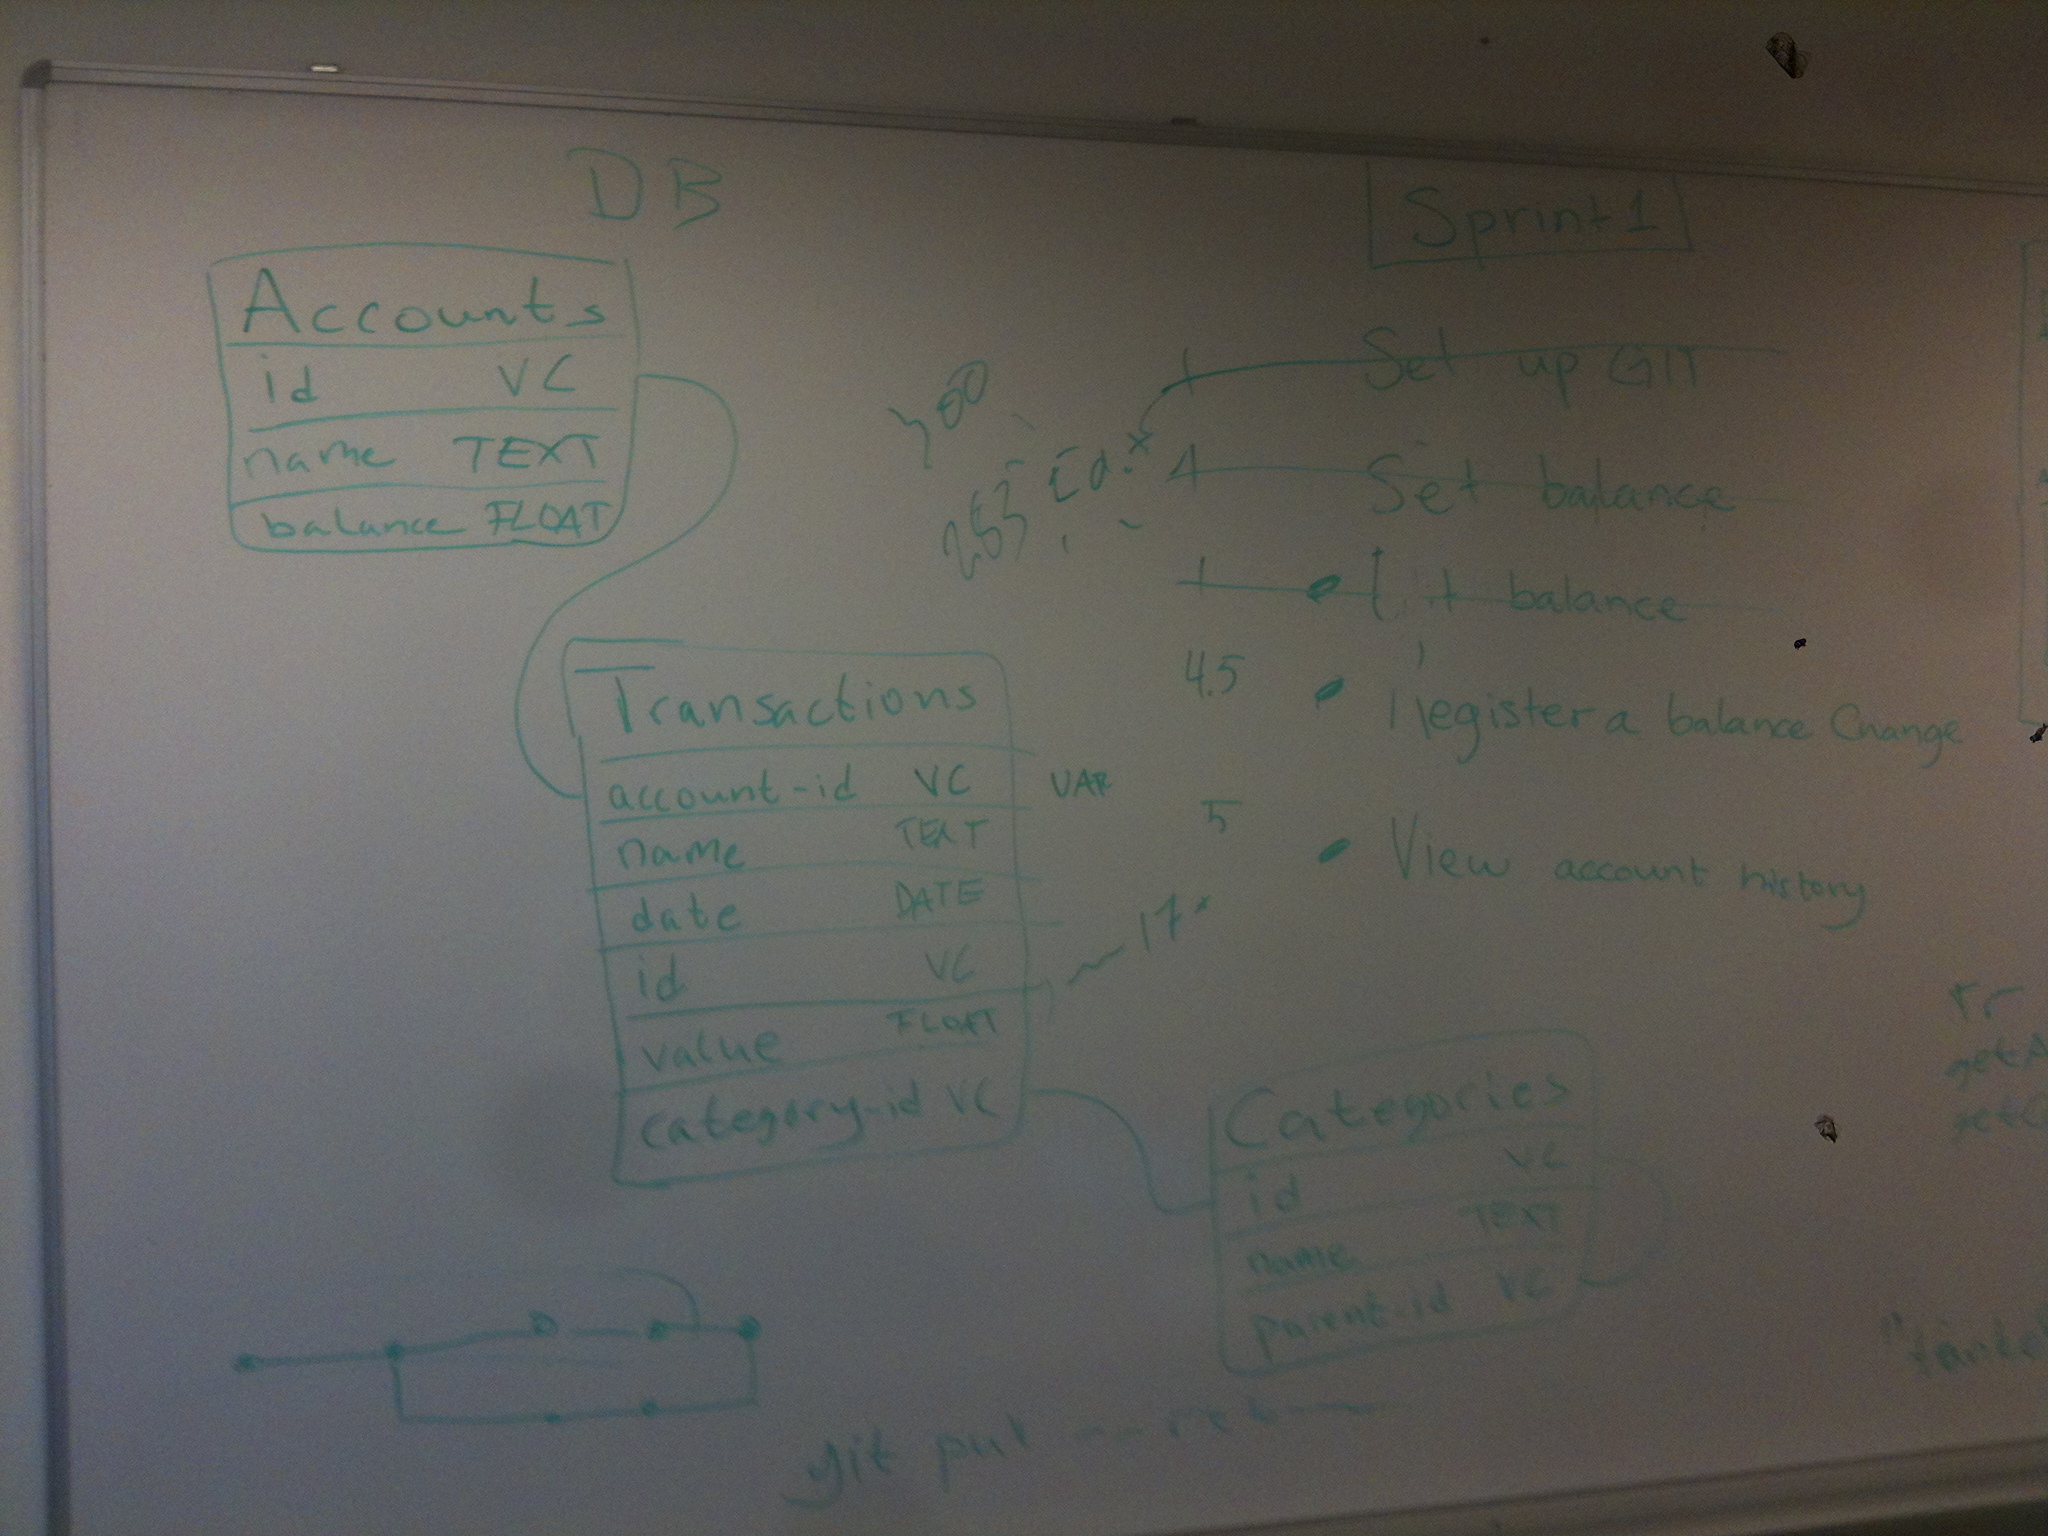 DB
Accounts
id VC
name TEXT
balance FLOAT
Transactions
account-id VC VAR
name TEXT
date DATE
id VC
value FLOAT
category-id VC
17
Categories
id VC
name TEXT
parent-id VC
git pul
Sprint 1
1 Set up GIT
4 Set balance
1 balance
4.5 Register a balance Change
5 View account history